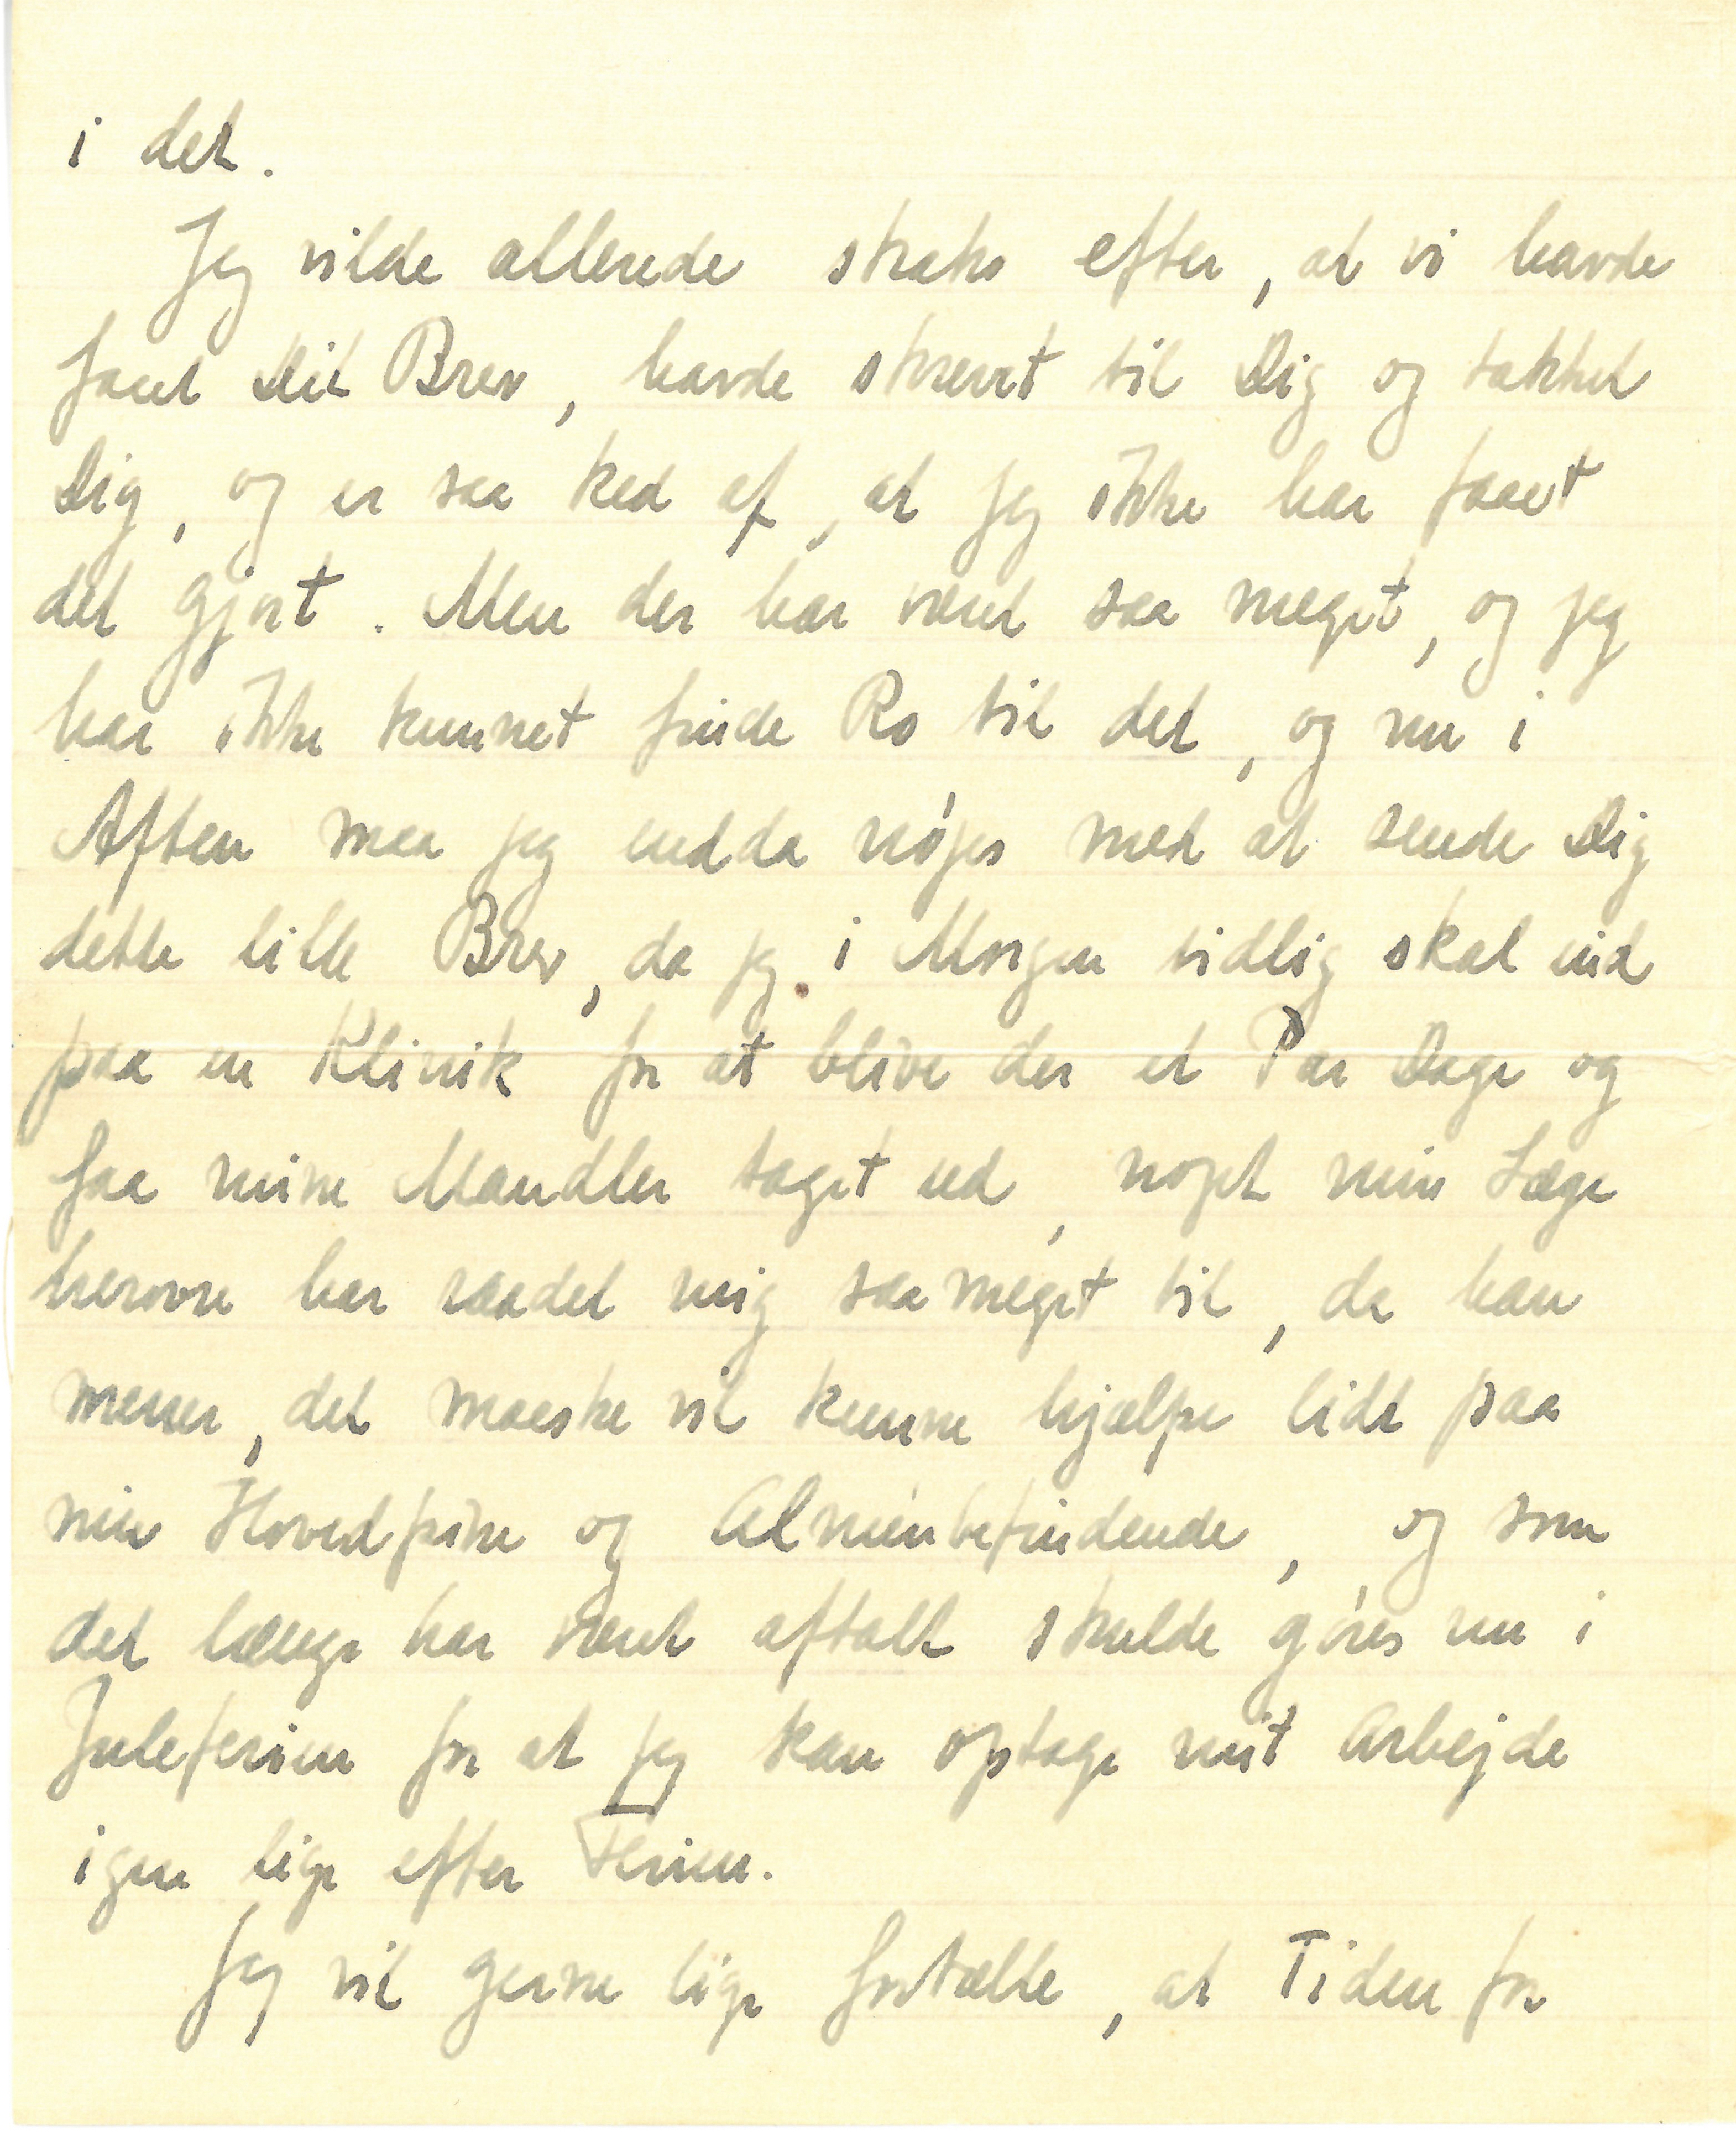 i det.
Jeg vilde allerede straks efter, at vi havde
faaet Dit Brev, havde skrevet til Dig og takket
Dig, og er saa ked af, at jeg ikke har faaet
det gjort. Men der har været saa meget, og jeg
har ikke kunnet finde Ro til det, og nu i
Aften maa jeg endda nøjes med at sende Dig
dette lille Brev, da jeg i Morgen tidlig skal ind
paa en Klinik for at blive der et Par Dage og
faa mine Mandler taget ud, noget min Læge
herovre har raadet mig saa meget til, da han
mener, det maaske vil kunne hjælpe lidt paa
min Hovedpine og Almenbefindende, og som
det længe har været aftalt skulde gøres nu i
Juleferien for at jeg kan optage mit Arbejde
igen lige efter Ferien.
Jeg vil gerne lige fortælle, at Tiden for